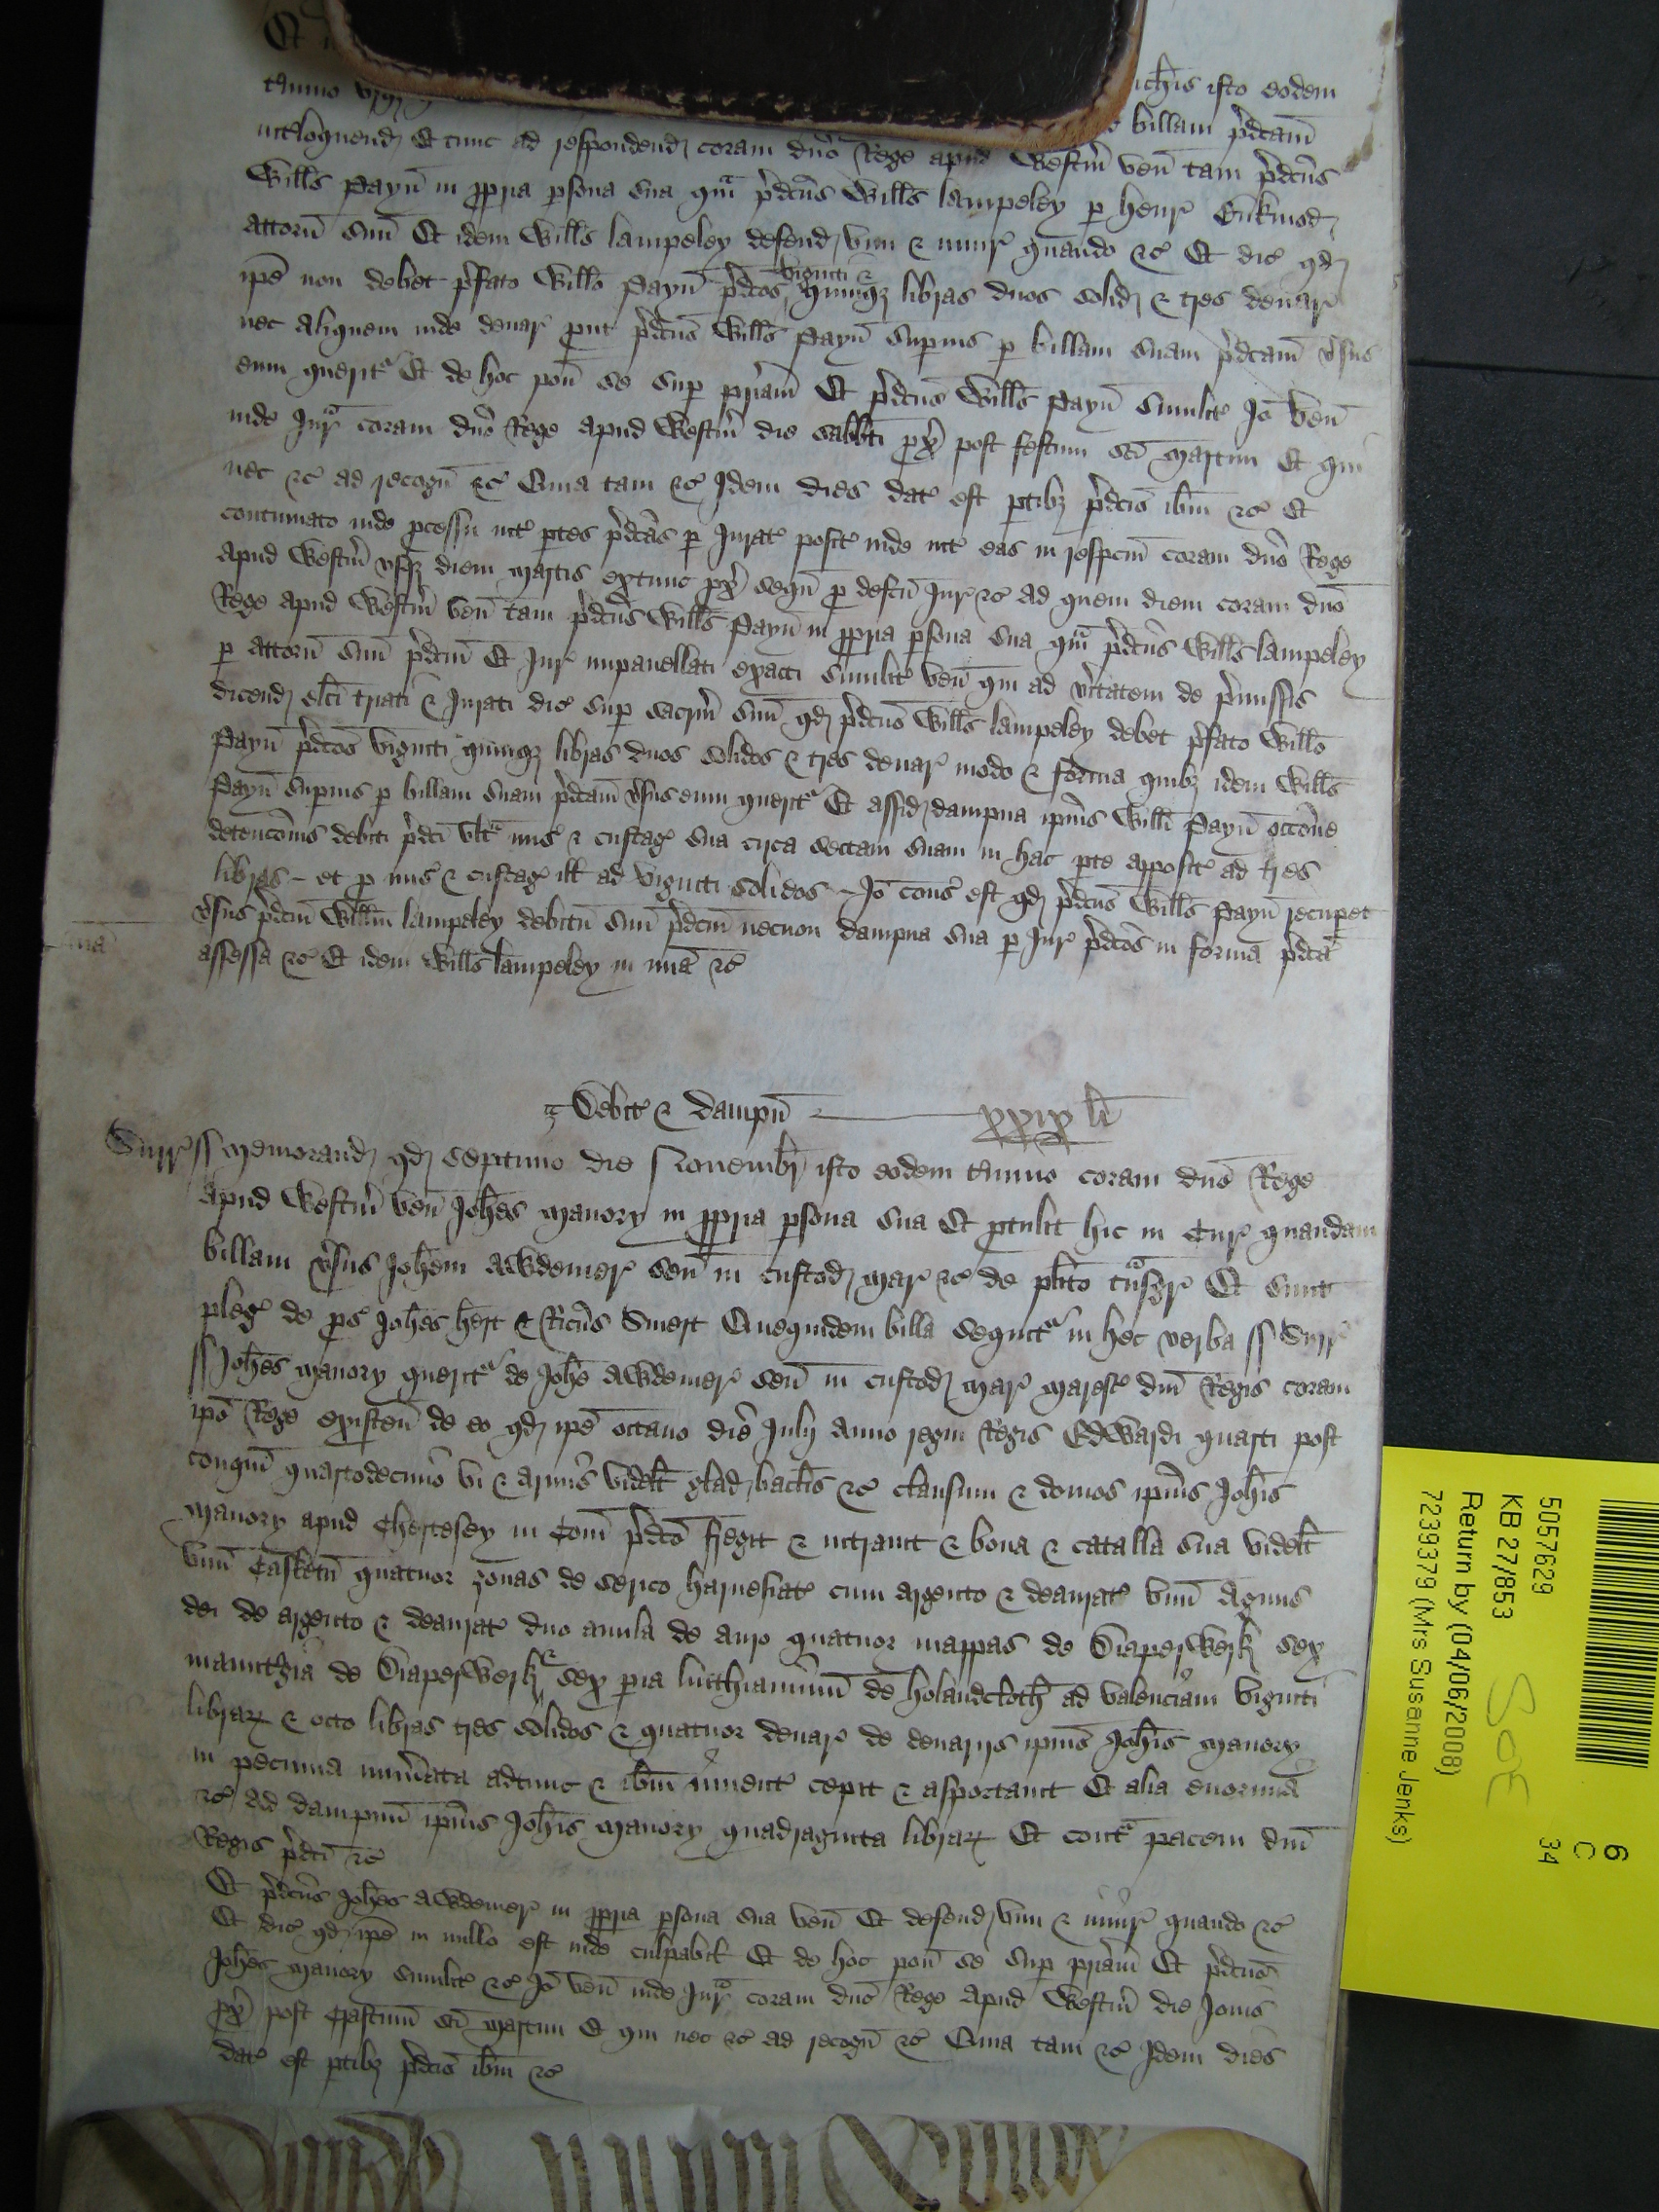 Et
t̃mino ... ich̃is isto eodem
int̃loquend Et tunc ad respondend coram dño Rege apud Westm̃ ven̄ tam p̃dc̃us
billam p̃dc̃am
Will̃s Payn̄ in ppria psona sua qm̃ p̃dc̃us Will̃s lampeley p henr̃
attorn̄ suū Et idem Will̃s lampeley defend vim & iniur̃ quando &c̃ Et dic̃ qd
ip̃e non debet p̃fato Will̃o Payn̄ p̃dc̃os viginti & quinqȝ libras duos solid & tres denar̃
nec aliquem inde denar̃ put p̃dc̃us Will̃s Payn̄ supius p billam suam p̃dc̃am ṽsus
eum querit̃ Et de hoc pon̄ se sup pr̃iam Et p̃dc̃us Will̃s Payn̄ simılit̃ Iõ ven̄
inde Iur̃ coram dño Rege apud Westm̃ die Sabb̃ti px̃ post festum sc̃i Martini Et qui
nec &c̃ ad recogn̄ &c̃ Quia tam &c̃ Idem dies dat̃ est ptibȝ p̃dc̃is ib̃m &c̃ Et
continuato inde pcessu int̃ ptes p̃dc̃as p Iurat̃ posit̃ inde int̃ eas in respc̃m coram dño Rege
apud Westm̃ usqȝ diem martis extunc px̃ seqū p defc̃u Iur̃ &c̃ ad quem diem coram dño
Rege apud Westm̃ ven̄ tam p̃dc̃us Will̃s Payn̄ in ppria psona sua qm̃ p̃dc̃us Will̃s lampeley
p attorn̄ suū p̃dc̃m Et Iur̃ impanellati exacti similit̃ ven̄ qui ad ṽitatem de p̃missis
dicend el̃ci triati & Iurati dic̃ sup sacrm̃ suū qd p̃dc̃us Will̃s lampeley debet p̃fato Will̃o
Payn̄ p̃dc̃os viginti quinqȝ libras duos solidos & tres denar̃ modo & forma quibȝ idem Will̃s
Payn̄ supius p billam suam p̃dc̃am ṽsus eum querit̃ Et assid dampna ip̃ius Will̃i Payn̄ occõne
detencõnis debiti p̃dc̃i ult̃ mis̃ & custag̃ sua circa sectam suam in hac pte apposit̃ ad tres
libras – et p mis̃ & custag̃ ill̃ ad viginti solidos – Iõ cons̃ est qd p̃dc̃us Will̃s Payn̄ recupet
ṽsus p̃dc̃m Will̃m lampeley debitū suū p̃dc̃m necnon dampna sua p Iur̃ p̃dc̃os in forma p̃dc̃a
mi̅a
assessa &c̃ Et idem Will̃s lampeley in mi̅a &c̃
Debit̃ & dampn̄ xxix li
Surr̃ ss Memorand qd septimo die Novembr̃ isto eodem t̃mino coram dño Rege
apud Westm̃ ven̄ Joh̃es Manory in ppria psona sua Et ptulit hic in Cur̃ quandam
billam ṽsus Joh̃em Awdemer̃ sen̄ in custod mar̃ &c̃ de pl̃ito tnsgr̃ Et sunt
pleg̃ de ps̃ Joh̃es hert & Ric̃us Smert Quequidem billa sequit̃ in hec verba ss Surr̃
ss Joh̃es Manory querit̃ de Joh̃e Awdemer̃ sen̄ in custod mar̃ maresc̃ dñi Regis coram
ip̃o Rege existen̄ de eo qd ip̃e octavo die July anno regni Regis Edwardi quarti post
conqm̃ quartodecimo vi & armis videl̃t glad bacl̃is &c̃ clausum & domos ip̃ius Joh̃is
Manory apud Chertesey in Com̃ p̃dc̃o fregit & intravit & bona & catalla sua videl̃t
unū Caskettū quatuor zonas de serico harnesiat̃ cum argento & deaurat̃ unū Agnus
dei de argento & deaurat̃ duo anula de auro quatuor mappas de Diaperwerk sex
manuthgia de Diaperwerk & sex pia linthiaminū de holandcloth ad valenciam viginti
librar̃ & octo libras tres solidos & quatuor denar̃ de denariis ip̃ius Joh̃is Manory
in pecunia num̃ata adtunc & ib̃m invent̃ cepit & asportavit Et alia enormia
&c̃ ad dampnū ip̃ius Joh̃is Manory quadraginta librar̃ Et cont̃ pacem dñi
Regis p̃dc̃i &c̃
Et p̃dc̃us Joh̃es Awdemer̃ in ppria psona sua ven̄ Et defend vim & iniur̃ quando &c̃
Et dic̃ qd ip̃e in nullo est inde culpabil̃ Et de hoc pon̄ se sup pr̃iam Et p̃dc̃us
Joh̃es Manory similit̃ &c̃ Iõ ven̄ inde Iur̃ coram dño Rege apud Westm̃ die Jovis
px̃ post Crastinū sc̃i Martini Et qui nec &c̃ ad recogn̄ &c̃ Quia tam &c̃ Idem dies
dat̃ est ptibȝ p̃dc̃is ib̃m &c̃
5057629
KB 27/853
Return by (04/06/2008)
7239379 (Mrs Susanne Jenks)
SoE
6
C
34